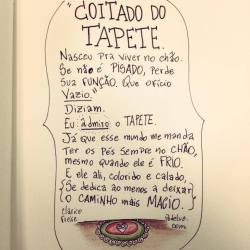 "COITADO DO
TAPETE.
Nasceu pra viver no chão.
Se não é PISADO, perde
Sua FUNÇÃO. Que ofício
Vazio."
Diziam.
Eu admiro o TAPETE.
Já que esse mundo me manda
Ter os pés sempre no CHÃO,
mesmo quando ele é FRIO,
E ele ali, colorido e calado,
Se dedica ao menos a deixar
O CAMINHO mais MACIO.
Clarice
Freire